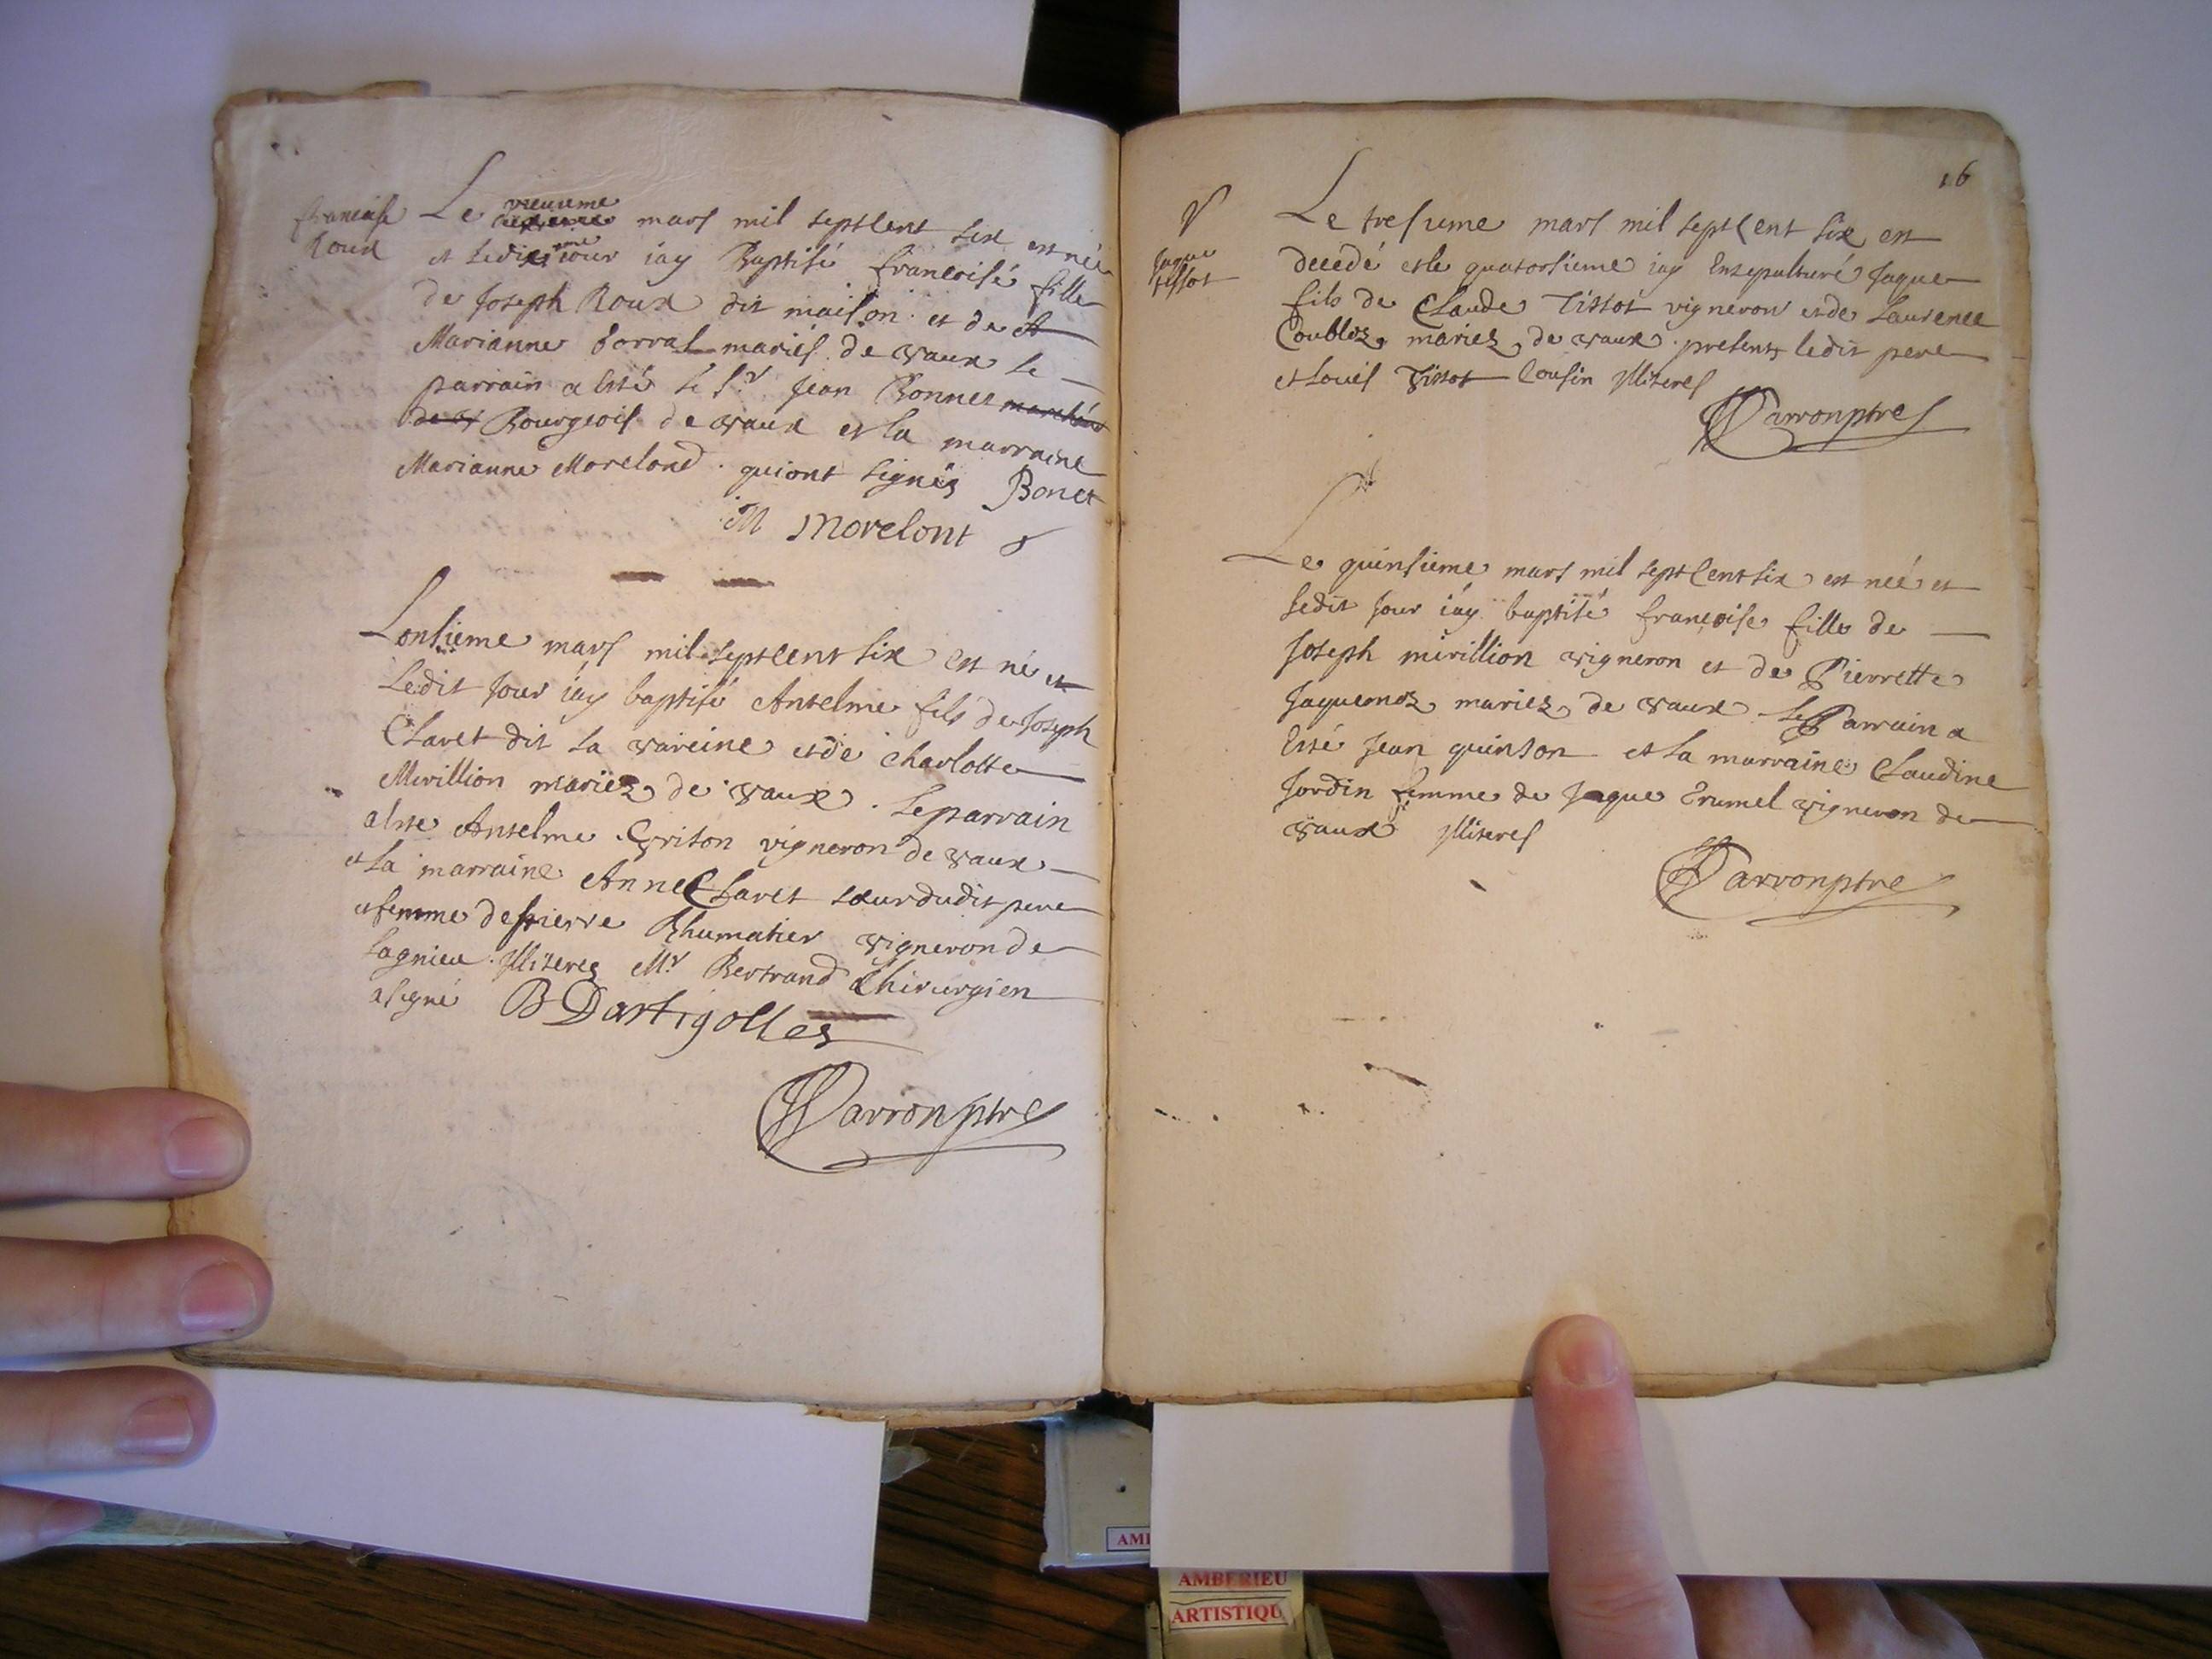 francoise
Roux
Le neufieme mars mil sept Cent six est née
et le dixieme jour iay Baptisé francoise fille
de Joseph Roux dit maison et de
Marianne Borral mariés de vaux le
parrain a esté le Sr Jean Bonnet marchand
de Bourgeois de vaux et la marraine
Marianne Morelond. qui ont signés Bonet
M Morelont
Lonsieme mars mil sept Cent six est né et
Ledit Jour iay baptisé Antelme fils de Joseph
Claret dit la vareine et de Charlotte
Mirillion mariez de vaux. Le parrain
a Este Antelme Griton vigneron de vaux
et la marraine Anne Claret sœur dudit pere
et femme de pierre Rhumatier vigneron de
Lagnieu. Illiteres Mr Bertrand Chirurgien
a signé B Dartigolles
Darron ptre
16
Jaque
tissot
Le tresieme mars mil sept Cent six est
decedé et le quatorsieme iay Ensepulturé Jaque
fils de Claude Tissot vigneron et de Laurence
Coubloz mariez de vaux. presents ledit pere
et Louis Tissot Cousin Illiteres
Darron ptre
Le quinsieme mars mil sept Cent six est née et
ledit Jour iay baptisé françoise fille de
Joseph mirillion vigneron et de Pierrette
Jaquemoz mariez de vaux Le Parrain a
Esté Jean quinson et la marraine Claudine
Jordin femme de Jaque Trumel vigneron de
vaux Illiteres
Darron ptre
AMBERIEU
ARTISTIQU